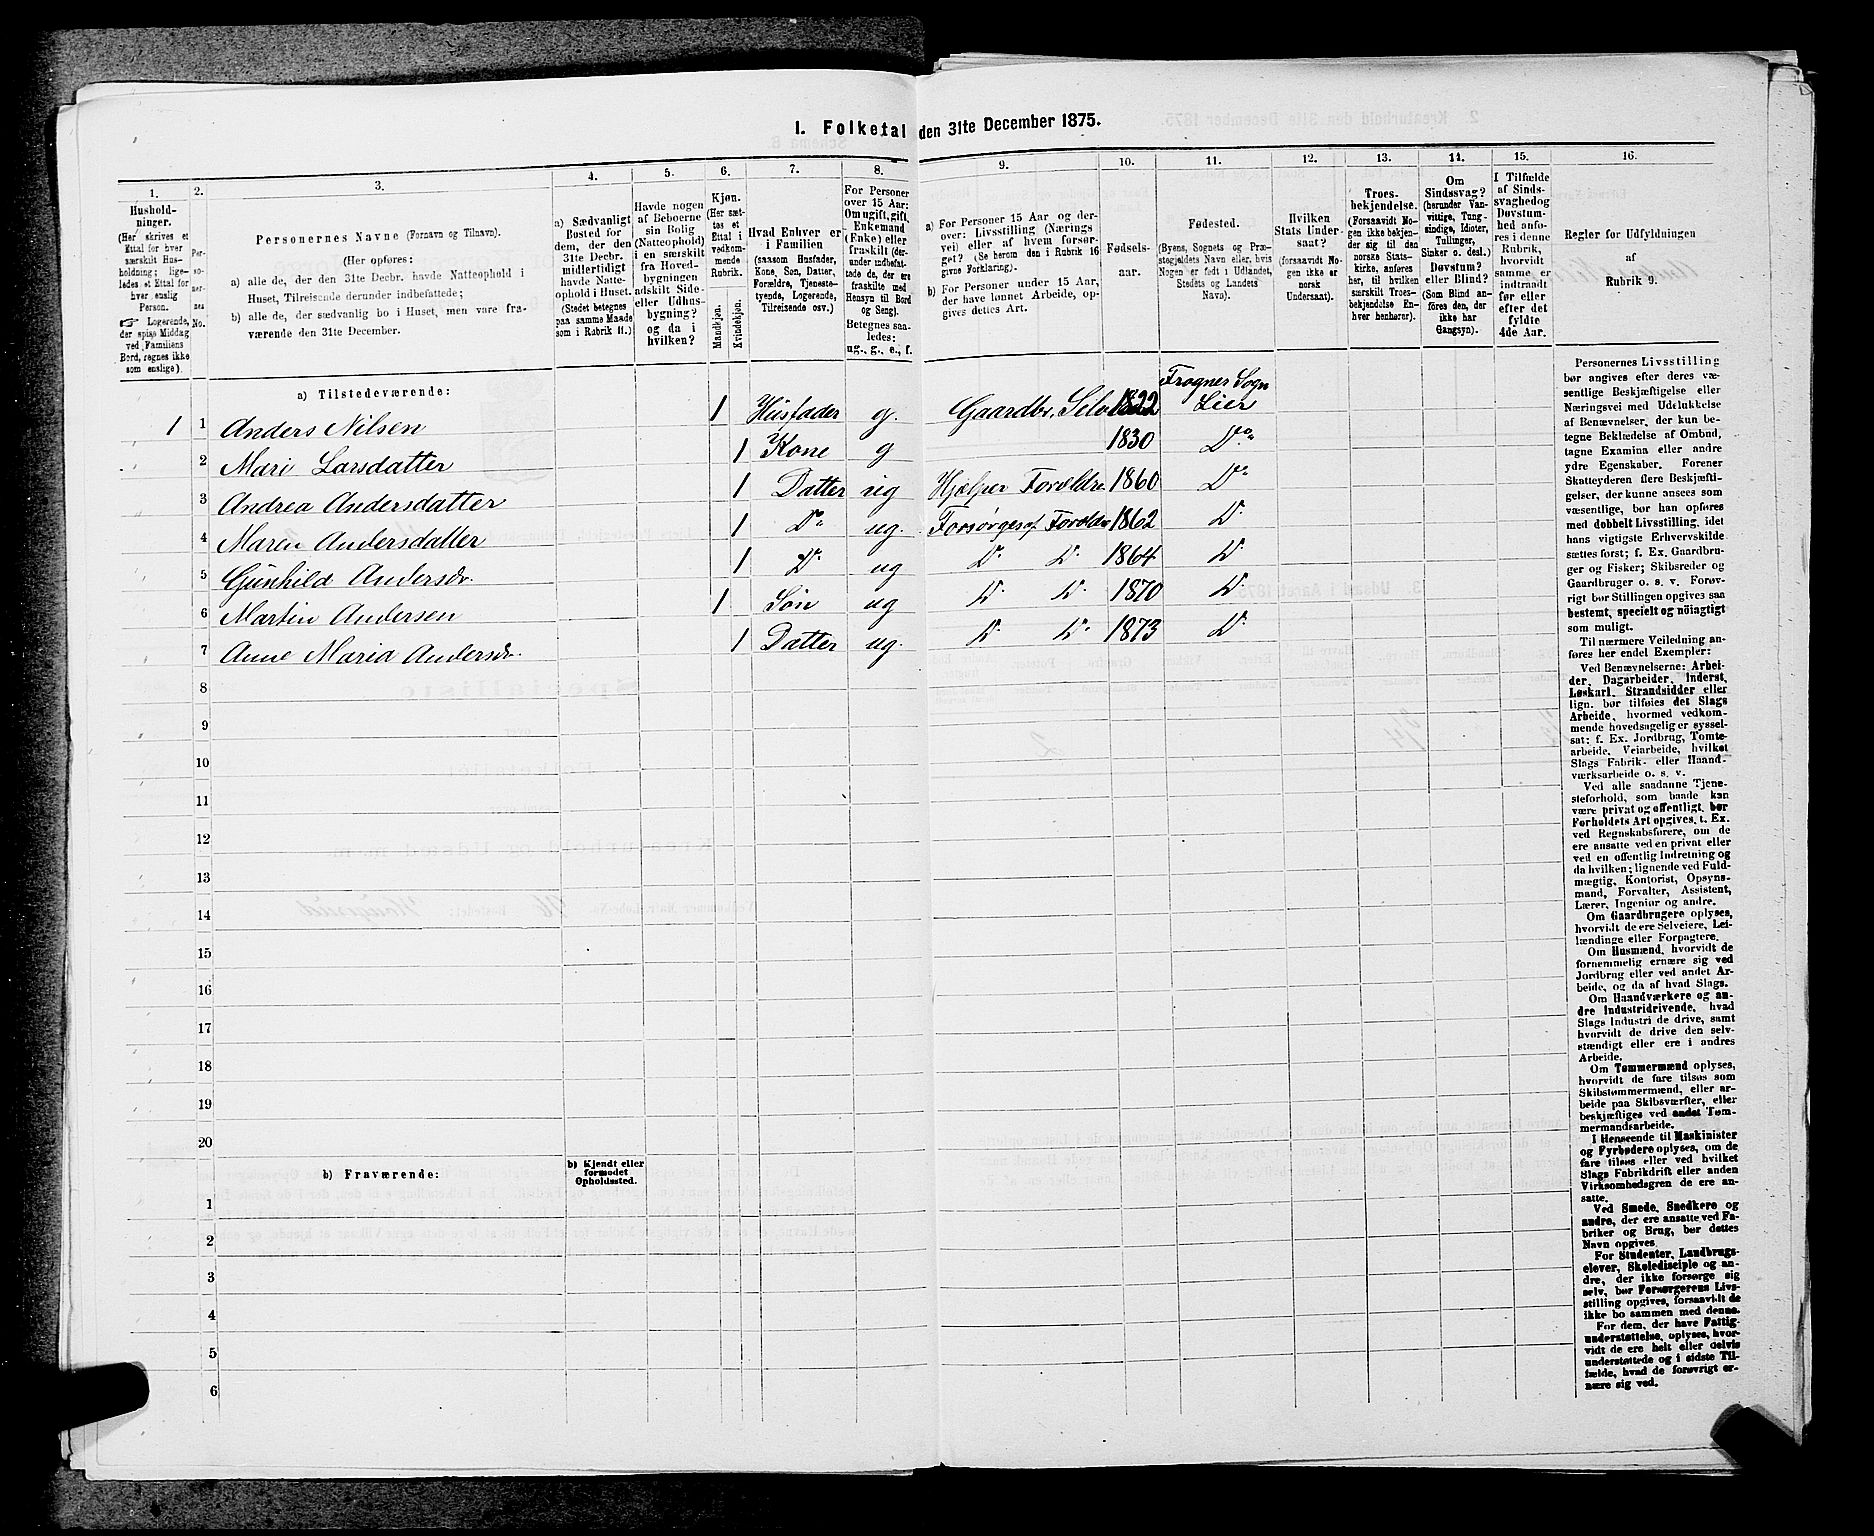 I. Folketal den 31te December 1875.
1. 2. 3. 4. 5. 6. 7. 8. 9. 10. 11. 12. 13. 14. 15. 16.
Hushold-
ninger.
(Her skrives et
Ettal for hver
særskilt Hus-
holdning; lige-
ledes et Ettal for
hver enslig
Person.
☞ Logerende,
der spise Middag
ved Familiens
Bord, regnes ikke
som enslige).
Per-
so-
ner-
nes
No.
Personernes Navne (Fornavn og Tilnavn).
(Her opføres:
a) alle de, der den 31te Decbr. havde Natteophold i
Huset, Tilreisende derunder indbefattede;
b) alle de, der sædvanlig bo i Huset, men vare fra-
værende den 31te December.
a) Sædvanligt
Bosted for
dem, der den
31te Decbr.
midlertidigt
havde Natte-
ophold i Huset.
(Stedet betegnes
paa samme Maade
som i Rubrik 11.)
Havde nogen
af Beboerne
sin Bolig
(Natteophold)
i en særskilt
fra Hoved-
bygningen
adskilt Side-
eller Udhus-
bygning?
og da i
hvilken?
Kjøn.
(Her sæt-
tes et
Ettal i
vedkom-
mende
Rubrik.
Mandkjøn.
Kvindekjøn.
Hvad Enhver er
i Familien
(saasom Husfader,
Kone, Søn, Datter,
Forældre, Tjeneste-
tyende, Logerende,
Tilreisende osv.)
For Personer
over 15 Aar:
Om ugift, gift,
Enkemand
(Enke) eller
fraskilt (der-
under indbefat-
tede de, der ere
fraskilte med
Hensyn til Bord
og Seng).
Betegnes saa-
ledes:
ug., g., e., f.
a) For Personer 15 Aar og der-
over: Livsstilling (Nærings-
vei) eller af hvem forsør-
get? (Se herom den i Rubrik 16
givne Forklaring).
b) For Personer under 15 Aar,
der have lønnet Arbeide, op-
gives dettes Art.
Fødsels-
aar.
Fødested.
(Byens, Sognets og Præ-
stegjeldets Navn eller, hvis
Nogen er født i Udlandet,
Stedets og Landets
Navn).
Hvilken
Stats Under-
saat?
(forsaavidt No-
gen ikke er
norsk
Undersaat).
Troes-
bekjendelse.
(Forsaavidt No-
gen ikke bekjen-
der sig til den
norske Stats-
kirke, anføres
her, til hvilken
særskilt Troes-
bekjendelse En-
hver henhører).
Om
Sindssvag?
(herunder Van-
vittige, Tung-
sindige, Idioter,
Tullinger,
Sinker o. desl.)
Døvstum?
eller Blind?
(Som Blind an-
føres den, der
ikke har
Gangsyn).
I Tilfælde
af Sinds-
svaghed og
Døvstum-
hed anfø-
res i denne
Rubrik,
hvorvidt
samme er
indtraadt
før eller
efter det
fyldte
4de Aar.
Regler for Udfyldningen
af
Rubrik 9.
a) Tilstedeværende:
Frogner Sogn
1 1 Anders Nilsen 1 Husfader g. Gaardbr. Selv 1822 Lier
2 Mari Larsdatter 1 Kone g 1830 Do
3 Andrea Andersdatter 1 Datter ug Hjælper Forældre 1860 Do
4 Maren Andersdatter 1 Do ug. Forsørges af Forældre 1862 D.
5 Gunhild Andersdr. 1 D. ug D. D. 1864 D.
6 Martin Andersen 1 Søn ug D. D. 1870 D.
7 Anne Maria Andersdr. 1 Datter ug. D. D. 1873 D.
8
9
10
11
12
13
14
15
16
17
18
19
20
b) Fraværende:
b) Kjendt eller
formodet
Opholdssted.
1
2
3
4
5
6
Personernes Livsstilling
bør angives efter deres væ-
sentlige Beskjæftigelse eller
Næringsvei med Udelukkelse
af Benævnelser, der kun be-
tegne Beklædelse af Ombud,
tagne Examina eller andre
ydre Egenskaber. Forener
Skatteyderen flere Beskjæfti-
gelser, der kunne ansees som
væsentlige, bør han opføres
med dobbelt Livsstilling, idet
hans vigtigste Erhvervskilde
sættes først; f. Ex. Gaardbru-
ger og Fisker; Skibsreder og
Gaardbruger o. s. v. Forøv-
rigt bør Stillingen opgives saa
bestemt, specielt og nöiagtigt
som muligt.
Til nærmere Veiledning an-
føres her endel Exempler:
Ved Benævnelserne: Arbei-
der, Dagarbeider, Inderst,
Løskarl, Strandsidder eller
lign. bør tilføies det Slags
Arbeide, hvormed vedkom-
mende hovedsagelig er syssel-
sat; f. Ex. Jordbrug, Tomte-
arbeide, Veiarbeide, hvilket
Slags Fabrik- eller Haand-
værksarbeide o. s. v.
Ved alle saadanne Tjene-
steforhold, som baade kan
være privat og offentligt, bør
Forholdets Art opgives, t. Ex.
ved Regnskabsførere, om de
ere ansatte ved en privat eller
ved en offentlig Indretning og
da hvilken; lignende ved Fuld-
mægtig, Kontorist, Opsyns-
mand, Forvalter, Assistent,
Lærer, Ingeniør og andre.
Om Gaardbrugere oplyses,
hvorvidt de ere Selveiere, Lei-
lændinge eller Forpagtere.
Om Husmænd, hvorvidt de
fornemmelig ernære sig ved
Jordbrug eller ved andet Ar-
beide, og da af hvad Slags.
Om Haandværkere og an-
dre Industridrivende, hvad
Slags Industri de drive, samt
hvorvidt de drive den selv-
stændigt eller ere i andres
Arbeide.
Om Tømmermænd oplyses,
hvorvidt de fare tilsøs som
Skibstømmermænd, eller ar-
beide paa Skibsværfter, eller
beskjæftiges ved andet Tøm-
mermandsarbeide.
I Henseende til Maskinister
og Fyrbødere oplyses, om de
fare tilsøs eller ved hvilket
Slags Fabrikdrift eller anden
Virksomhedsgren de ere an-
satte.
Ved Smede, Snedkere og
andre, der ere ansatte ved Fa-
briker og Brug, bør dettes
Navn opgives.
For Studenter, Landbrugs-
elever, Skoledisciple og an-
dre, der ikke forsørge sig
selv, bør Forsørgerens Livs-
stilling opgives, forsaavidt de
ikke bo sammen med denne.
For dem, der have Fattig-
understøttelse, oplyses, hvor-
vidt de ere helt eller delvis
understøttede og i sidste Til-
fælde, hvad de forøvrigt er-
nære sig ved.